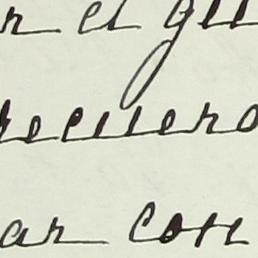 r el gu
recuero
ar con